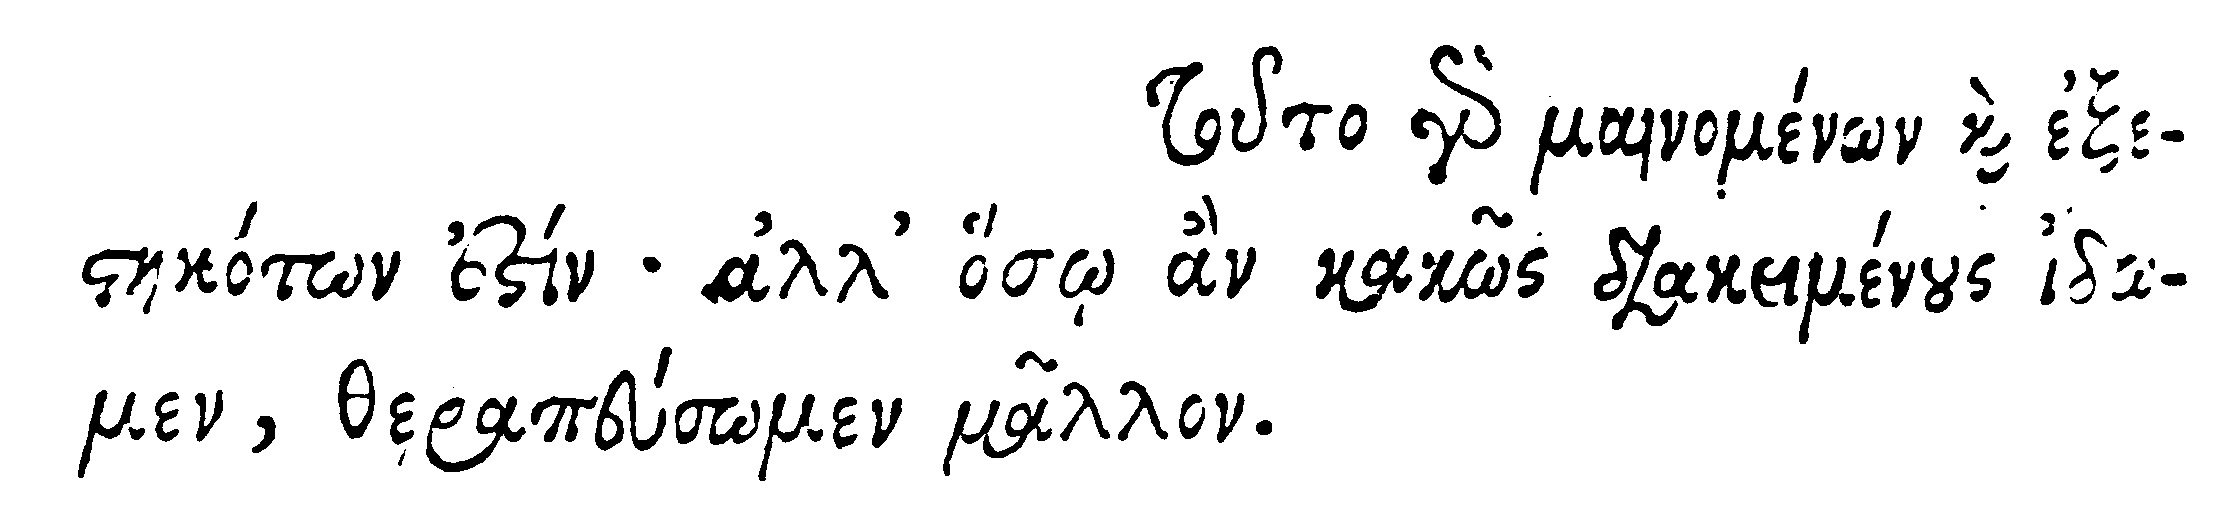 Τοῦτο γὰρ μαινομένων καὶ ἐξε-
στηκότων ἐστίν· ἀλλ’ ὅσῳ ἂν κακῶς διακειμένους ἰδω-
μεν, θεραπεύσωμεν μᾶλλον.